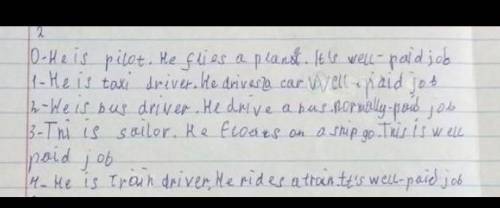 2
0-He is pilot. He flies a plane. It's well-paid job
1-He is taxi driver. He drives a car Well-paid job
2-He is bus driver. He drive a bus. normally-paid job
3-Thi is sailor. He floats on a ship go. This is well
paid job
4- He is Train driver. He rides a train. It's well-paid job